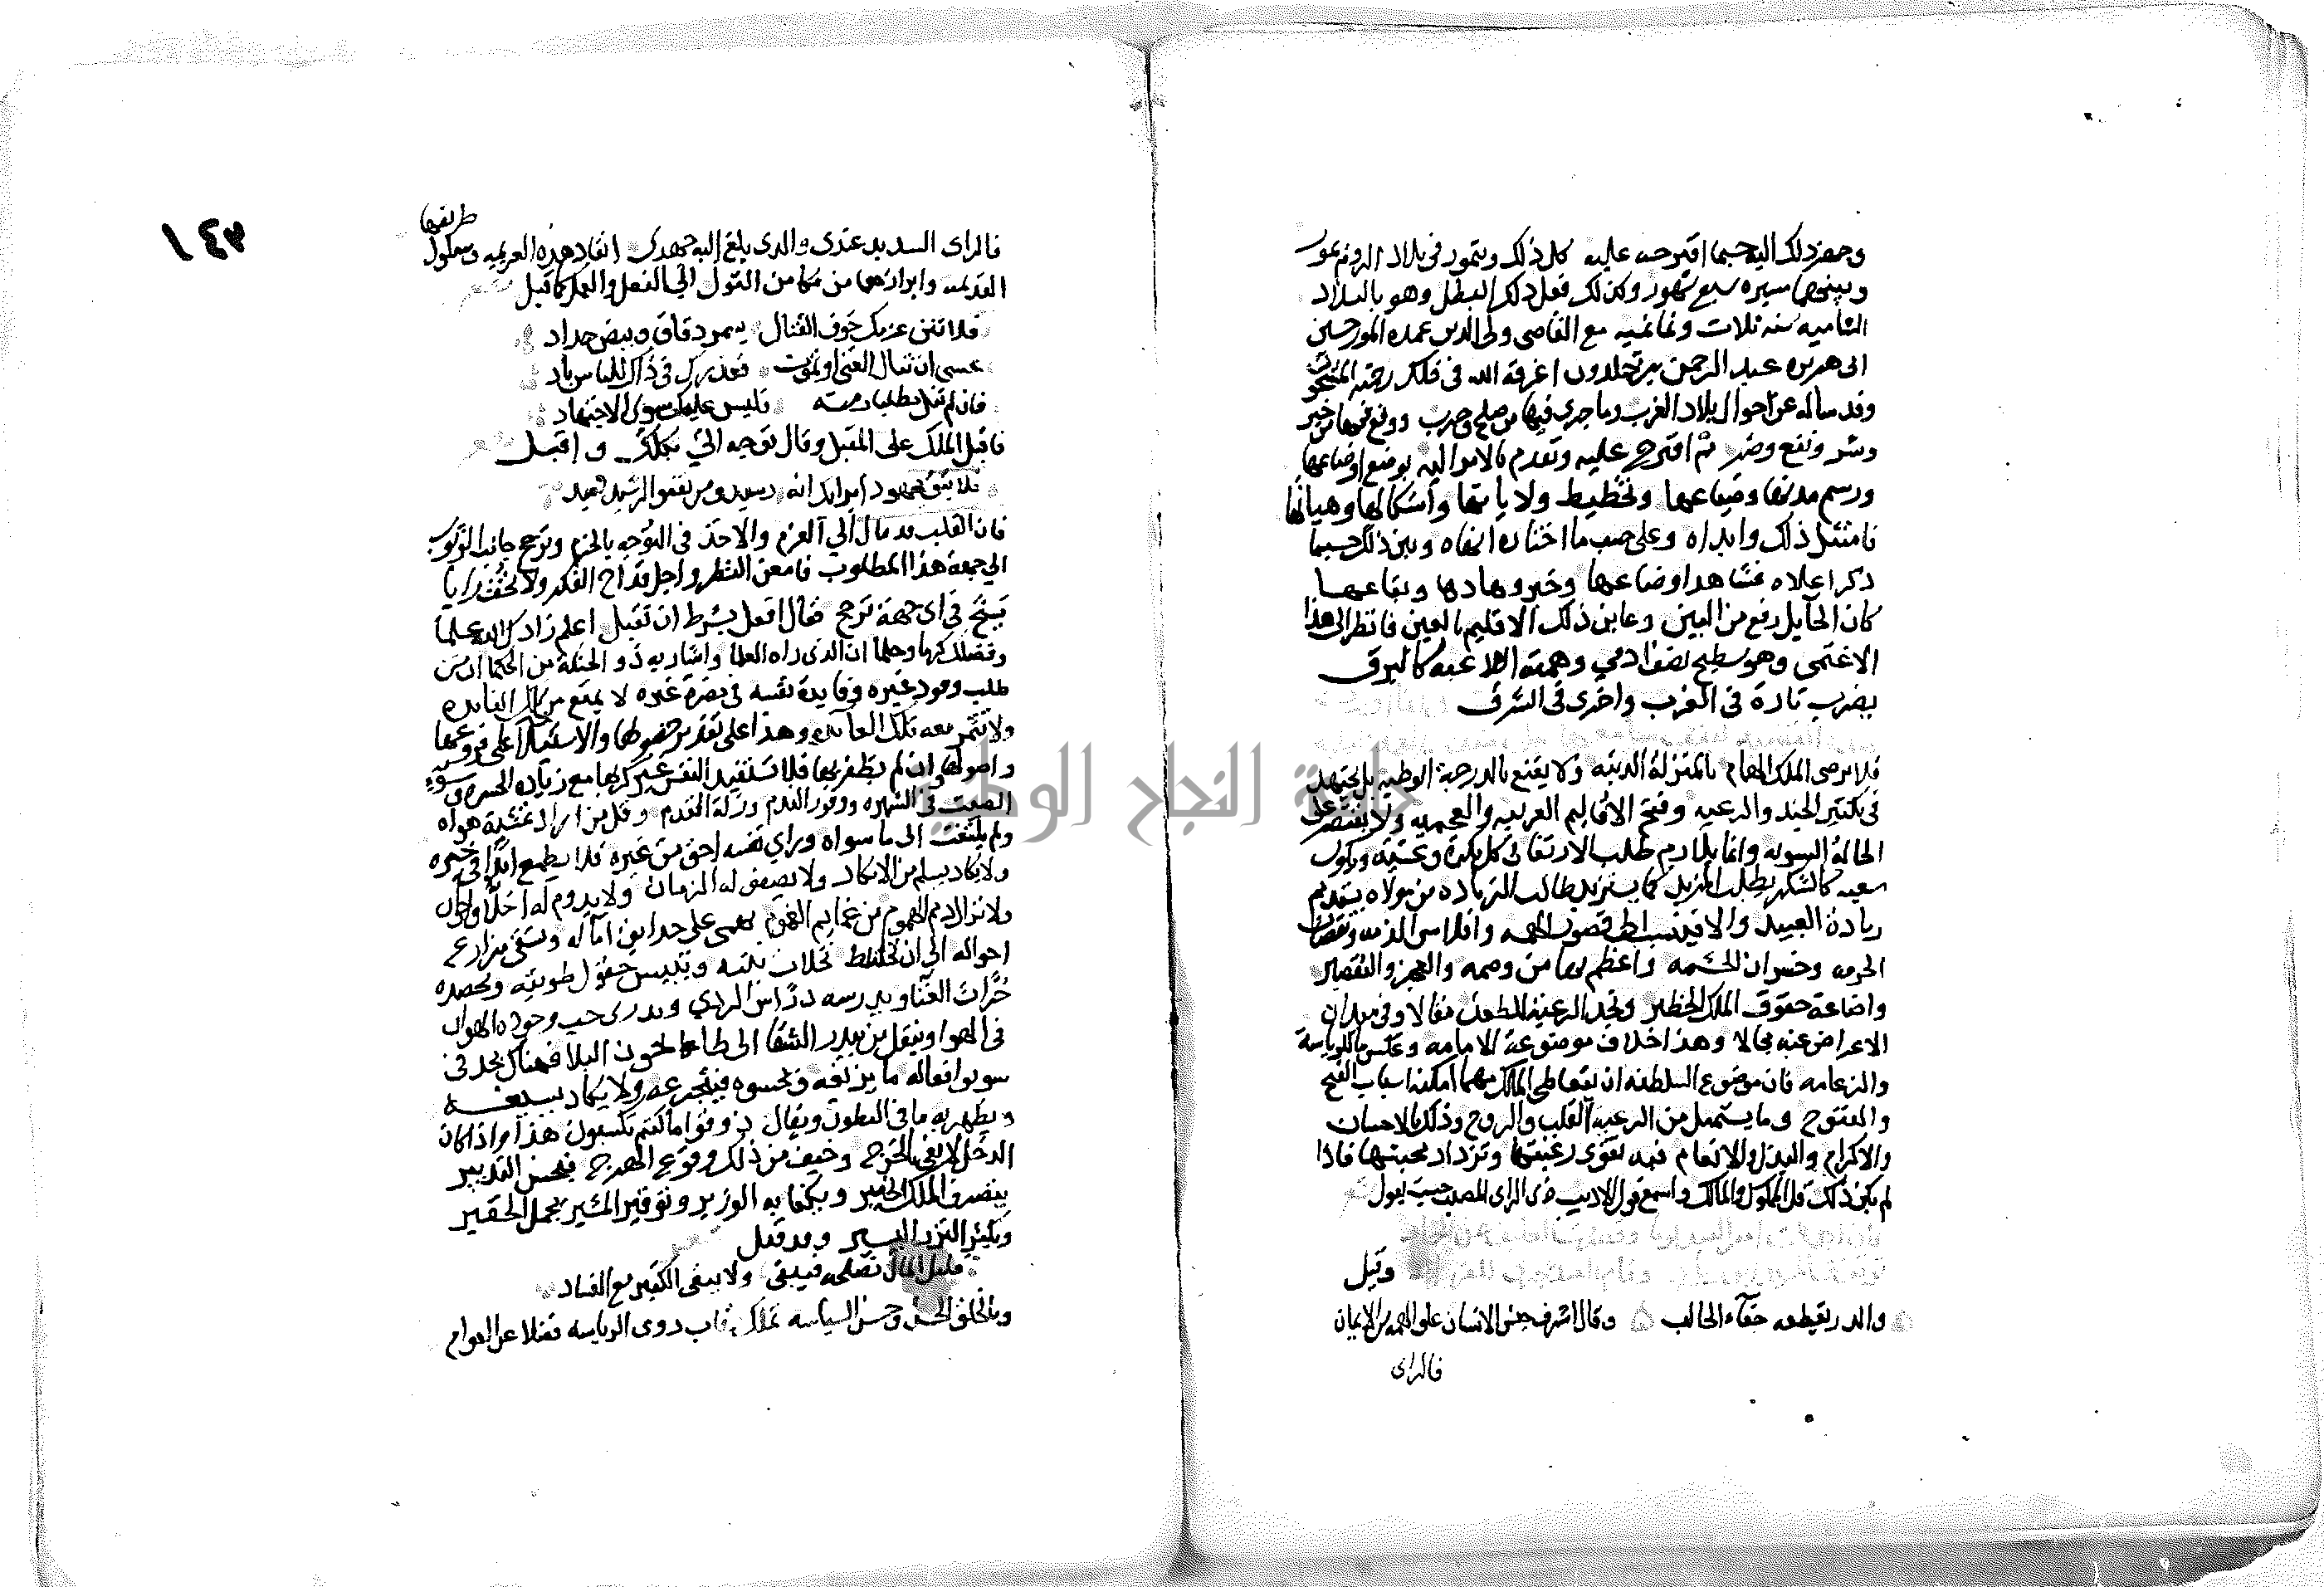 وحضر ذلك اليه حسبما اقترحه عليه كل ذلك وتيمور في بلاد الروم يمور
وبينهما مسيرة سبع شهور وكذلك فعل ذلك البطل وهو بالبلاد
الشاميه سنه ثلاث وثمانميه مع القاضي ولي الدين عمده المورخين
ابي هريره عبد الرحمن بن خلدون اغرقه الله في فلك رحمته المشحون
وقد ساله عن احوال بلاد الغرب وما جري فيها من صلح وحرب ووقع فيها من خير
وشر ونفع وضر ثم اقترح عليه وتقدم بالامر اليه بوضع اوضاعها
ورسم مدنها وضياعها وتخطيط ولاياتها واشكالها وهياتها
فامتثل ذلك وابداه وعلي حسب ما اختاره انهاه وبين ذلك حسبما
ذكر اعلاه فشاهد اوضاعها وخبر وهادها وبقاعها
كان الحايل رفع من البين وعاين ذلك الاقليم بالعين فانظر الي هذا
الاغتمي وهو سطيح نصف ادمي وهمته اللاعبه كالبرق
يضرب تارة في الغرب واخري في الشرق
فلا يرضي الملك الهمام بالمنزلة الدنيه ولا يقنع بالدرجة الوطيه بل يجتهد
في تكثير الجند والرعيه وفتح الاقاليم العربيه والعجميه ولا يقتصر علي
الحالة السويه وانما يلازم طلب الارتقا في كل بكرة وعشيه ويكون
سعيه كالشكر يطلب المزيد كما يستزيد طالب الزياده من مولاه بتقديم
زيادة العبيد والا فينسب الي قصور الهمه وافلاس الذمه ونقصان
الحرمه وخسران الحشمه واعظم بها من وصمه والعجز والتقصير
واضاعة حقوق الملك الخطير وتجد الرعية للطعن مقالا وفي ميدان
الاعراض عنه مجالا وهذا خلاف موضوعة الامامه وعكس ما للرياسة
والزعامه فان موضوع السلطنه ان يتعاطي الملك مهما امكنه اسباب الفتح
والفتوح وما يستميل من الرعيه القلب والروح وذلك بالاحسان
والاكرام والبذل والانعام فبه تقوي رغبتها وتزداد محبتها فاذا
لم يكن ذلك قل المملوك والمالك واسمع قول الاديب ذي الراي المصيب حيث يقول
وقيل
والدر يقطعه جفاء الحالب وقال اشرف جنس الانسان علو الهمه من الايمان
فالراي
١٤٣
طريقها
فالراي السديد عندي والذي بلغ اليه جهدي انفاذ هذه العزيمه وسلوك
القديمه وابرازها من مكامن القول الي الفعل والعمل كما قيل
فلا تثني عزمك خوف القتال بسمر دقاق وبيض حداد
عسي ان تنال الغني او تموت فعذرك في ذاك للناس باد
فان لم تنل مطلبا رمته فليس عليك سوي الاجتهاد
فاقبل الملك علي المقبل وقال توجه الي بكلك واقبل
فان القلب قد مال الي العزم والاخذ في التوجه بالحزم وترجح جانب الركوب
الي جهة هذا المطلوب فامعن النظر واجل قداح الفكر
في اي جهة ترجح فقال افعل بشرط ان تقبل اعلم زادك الله علما
وفضلك كرما وحلما ان الذي راه العلما واشار به ذو الحنكة من الحكما ان من
طلب وجود غيره وفايدة نفسه في مضرة غيره لا يمتع من تلك الفايده
ولا تثمر معه تلك العايده وهذا علي تقدير حصولها والاستيلا علي فروعها
واصولها وان لم يظفر بها فلا تستفيد النفس غير كربها مع زيادة الحسره وسوء
الصيت في الشهره ووفور الندم وزلة القدم وقل من اراد تمشية هواه
ولم يلتفت الي ما سواه وراي نفسه احق من غيره فلا يطمع ابدا في خيره
ولا يكاد يسلم من الانكاد ولا يصفو له الزمان ولا يدوم له اخلا واخوان
ولا تزال ديم الهموم من غمايم الغموم تهمي علي حدايق آماله وتسقي مزارع
احواله الي ان
في الهوا وينقل من بيدر الشقا الي طاحون البلا فهناك يجد في
ويظهر به ما في البطون ويقال ذوقوا ما كنتم تكسبون هذا واذا كان
الدخل لا يفي بالخرج وخيف من ذلك وقوع الهرج فبحسن التدبير
بتصرف الملك الخبير وبكفاية الوزير وتوفير المشير يجمل الحقير
ويكثر النزر اليسير وقد قيل
قليل المال تصلحه فيبقي ولا يبقي الكثير مع الفساد
وبالخلق الحسن وحسن السياسه تملك رقاب ذوي الرياسه فضلا عن العوام
جامعة النجاح الوطنية